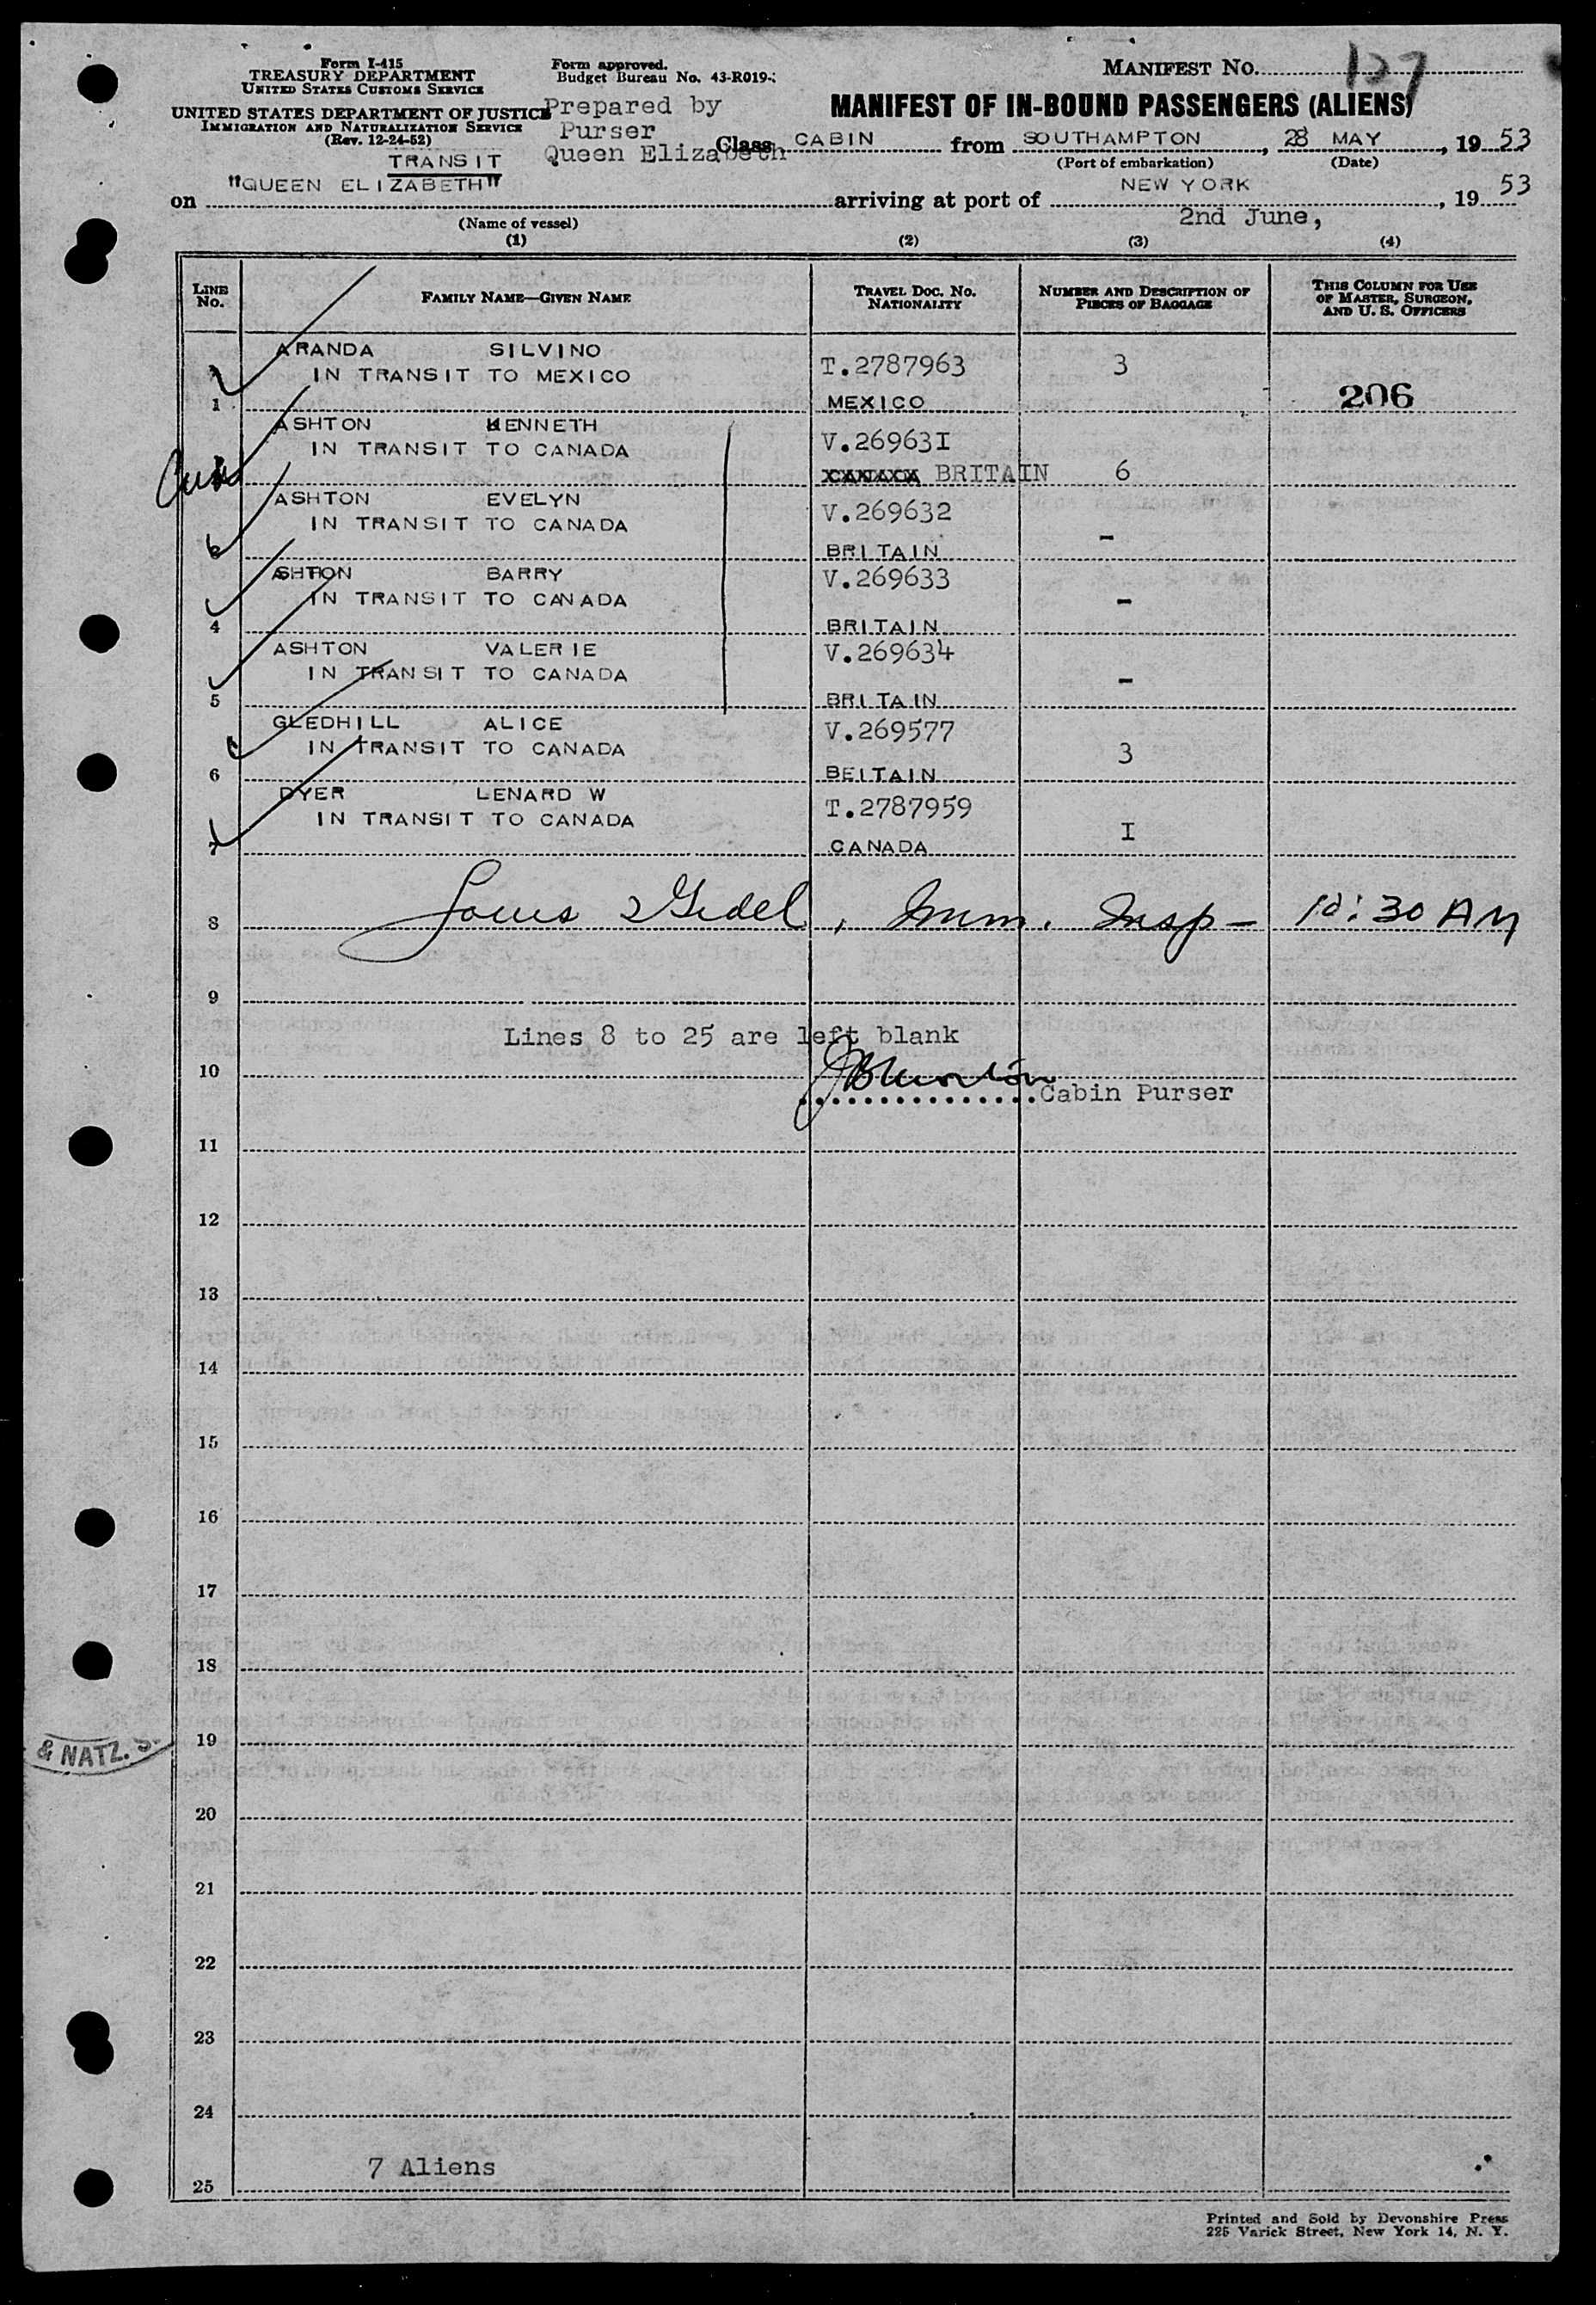 Form I-415
TREASURY DEPARTMENT
UNITED STATES CUSTOMS SERVICE
UNITED STATES DEPARTMENT OF JUSTICE
IMMIGRATION AND NATURALIZATION SERVICE
(Rev. 12-24-52)
TRANSIT
Form approved.
Budget Bureau No. 43-R019-
Prepared by
Purser
Queen Elizabeth
MANIFEST NO. 127
MANIFEST OF IN-BOUND PASSENGERS (ALIENS)
Class CABIN from SOUTHAMPTON, 28 MAY, 19 53
(Port of embarkation) (Date)
on "QUEEN ELIZABETH" arriving at port of NEW YORK, 19 53
2nd June,
(Name of vessel)
(1) (2) (3) (4)
LINE NO. FAMILY NAME—GIVEN NAME TRAVEL DOC. NO. NATIONALITY NUMBER AND DESCRIPTION OF PIECES OF BAGGAGE THIS COLUMN FOR USE OF MASTER, SURGEON, AND U. S. OFFICERS
ARANDA SILVINO T.2787963 3
IN TRANSIT TO MEXICO
1 MEXICO 206
ASHTON KENNETH V.269631
IN TRANSIT TO CANADA
BRITAIN 6
ASHTON EVELYN V.269632
IN TRANSIT TO CANADA
BRITAIN -
ASHTON BARRY V.269633
IN TRANSIT TO CANADA -
4 BRITAIN
ASHTON VALERIE V.269634
IN TRANSIT TO CANADA -
5 BRITAIN
GLEDHILL ALICE V.269577
IN TRANSIT TO CANADA 3
6 BEITAIN
DYER LENARD W T.2787959
IN TRANSIT TO CANADA I
7 CANADA
8 Louis Gidel, Imm. Insp - 10:30 AM
9
Lines 8 to 25 are left blank
10
Cabin Purser
11
12
13
14
15
16
17
18
19
& NATZ. S.
20
21
22
23
24
7 Aliens
25
Printed and Sold by Devonshire Press
225 Varick Street, New York 14, N. Y.